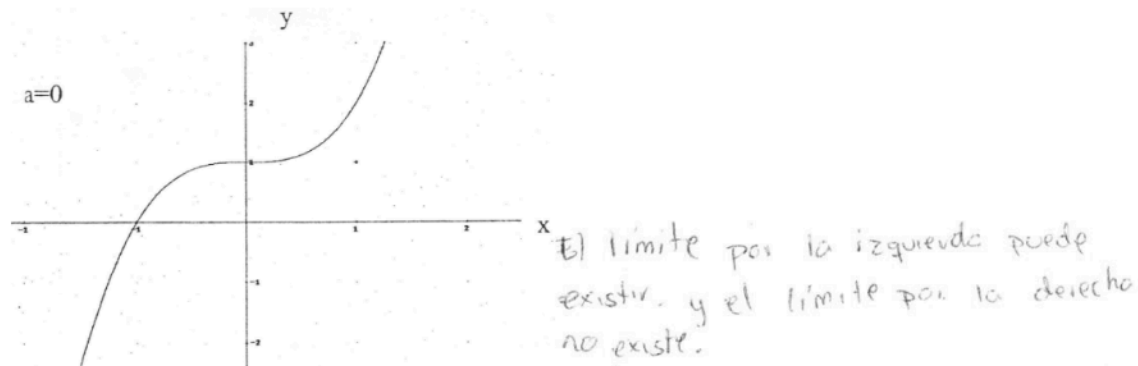 y
3
a=0
2
1
-2
-1
1
2
x
-1
-2
El límite por la izquierda puede
existir. y el límite por la derecha
no existe.